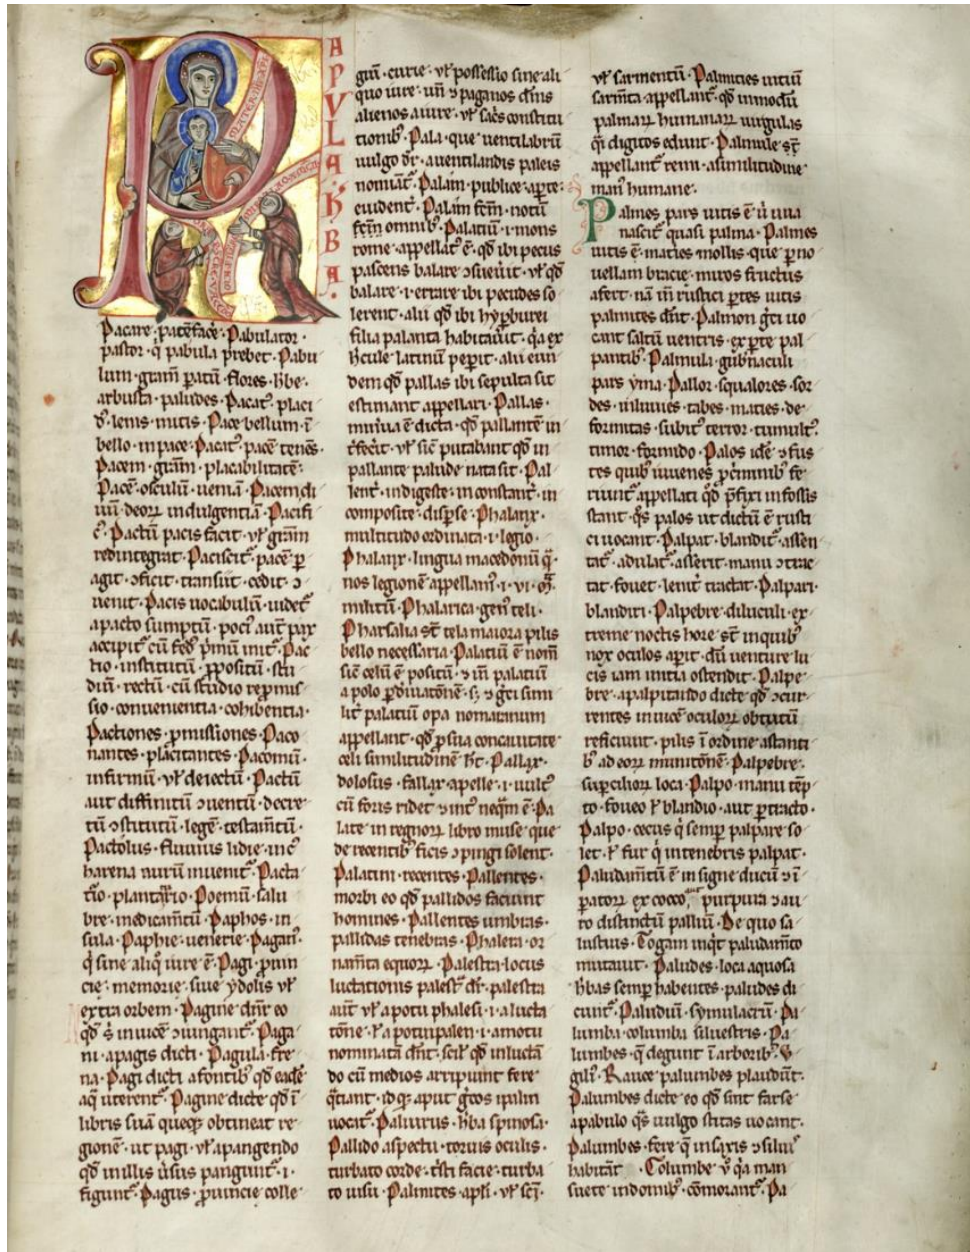 PAPULA KBBA.
MATER MISERI
Pacare · patēfacē · Pabulator ·
pastor · q̇ pabula prebet · Pabu
lum · gram̄ · ꝑatū · flores · h̄be ·
arbusta · paludes · Pacat᷒ · placi
d᷒ · lenis · mitis · Pace bellum · ī
bello · in pace · Pacat᷒ · pacē tenēs ·
Pacem · grām̄ · placabilitatē ·
Pacē · osculū · ueniā · Pacem di
uū · deorꝝ indulgentiā · Pacifi
c᷒ · Pactū pacis facit · vł grām̄
redintegrat · Paciscit᷒ · pacē ꝑ
agit · ɔficit · transiit · cedit · ɔ
uenit · Pacis uocabulū · uidet᷒
a pacto sumptū · poci᷒ aut̄ pax
accipit᷒ cū fed᷒ pͥmū init᷒ · Pac
tio · institutū · ꝓpositū · stu
diū · rectū · cū studio reꝓmis
sio · conuenientia · cohibentia ·
Pactiones · ꝓmissiones · Paco
nantes · placitantes · Pacomiū ·
infirmū · vł deiectū · Pactū
aut diffinitū ɔuentū · decre
tū ɔstitutū · legē · testam̄tū ·
Pactolus · fluuius lidie · in c᷒
harena aurū inuenit᷒ · Pacta
rio · plantario · Poemiū · salu
bre · medicam̄tū · Paphos · in
sula · Paphie · uenerie · Pagan᷒ ·
q̇ sine aliq̇ iure ē · Pagi · ꝓuin
cie · memorie · siue ydolis vł
extra orbem · Pagine dn̄r eo
qđ ẜ inuicē ɔiungant᷒ · Paga
ni · a pagis dicti · Pagula · fre
na · Pagi dicti a fontib᷒ qđ eadē
aq̄ uterent᷒ · Pagine dicte qđ ī
libris suā queqꝫ obtineat re
gionē · ut pagi · vł a pangendo
qđ in illis uersus pangunt᷒ · i ·
figunt᷒ · Pagus · ꝓuincie colle
giū · curie · vł possessio sine ali
quo iure · un̄ ⁊ paganos d̄m̄s
alienos a iure · vł sac̄s constitu
tionib᷒ · Pala · que uentilabrū
uulgo dr̄ · a uentilandis paleis
nominat᷒ · Palam · publice · aꝑte ·
euident᷒ · Palam fcm̄ · notū
fcm̄ omnib᷒ · Palatiū · i · mons
rome · appellat᷒ ē · qđ ibi pecus
pascens balare ɔsueuit · vł qđ
balare · i · errare ibi pecudes so
lerent · alii qđ ibi hyꝑburei
filia palanta habitauit · q̇a ex
hercule latinū peꝑit · alii eun
dem qđ pallas ibi sepulta sit
estimant appellari · Pallas ·
minuia ē dicta · qđ pallantē in
t̄fecit · vł sic̄ putabant qđ in
pallante palude nata sit · Pal
lent᷒ · indigeste · inconstant᷒ · in
composite · disꝑse · Phalanx ·
multitudo ordinata · i · legio ·
Phalanx · lingua macedonū q̄ ·
nos legionē appellam᷒ · i · vi · m̄ ·
militū · Phalarica · gen᷒ teli ·
Pharsalia st̄ tela maiora pilis
bello necessaria · Palatiū ē nom̄
sic̄ celū ē positū · ⁊ in̄ palatiū
a polo ꝑ diuatonē · sꝫ ⁊ gͨci simi
lit᷒ palatiū oꝑa nomatiuum
appellant · qđ ꝑ sua concauitate
celi similitudinē h̄t · Pallax ·
dolosus · fallax · a pelle · i · uult᷒
cū foris ridet ⁊ int᷒ neq̄m̄ ē · Pa
late in regnorꝝ libro muse que
de recentib᷒ ficis ɔpingi solent ·
Palatini · recentes · Pallentes ·
morbi eo qđ pallidos faciunt
homines · Pallentes umbras ·
pallidas tenebras · Phalera · or
nam̄ta equorꝝ · Palestra · locus
luctationis palest᷒ dr̄ · palestra
aut̄ vł apotu phalesi · i · a lucta
tōne · ł a potu ipalen · i · a motu
nominatā dn̄t · scił qđ in luctā
do cū medios arripiunt fere
q̄ciant · id qꝫ aput gͨcos ipalin
uocat᷒ · Paliurus · h̄ba spinosa ·
Pallido aspectu · toruis oculis ·
turbato corde · tͥsti facie · turba
to uisu · Palmites · apłi · vł scī ·
vł sarmentū · Palmites uitiū
sarm̄ta appellant᷒ · qđ in modū
palmarꝝ humanarꝝ uirgulas
q̄i digitos edunt · Palmule st̄
appellant᷒ remi · a similitudine
man᷒ humane ·
Palmes pars uitis ē ū uua
nascit᷒ quasi palma · Palmes
uitis ē · maties mollis · que ꝑ no
uellam bracie · nuros fructus
afert · nā in̄ rustici ꝑtes uitis
palmites dn̄t · Palmon gͨci uo
cant saltū uentris · ex ꝑte pal
pantib᷒ · Palmula · gub̄naculi
pars yma · Pallor · squalores · sor
des · inluuies · tabes · maties · de
formitas · subit᷒ terror · tumult᷒ ·
timor · formido · Palos idē ⁊ fus
tes quib᷒ iuuenes ꝑ cͥminib᷒ fe
riunt᷒ appellati qđ p̄fixi in fossis
stant · q̄s palos ut dictū ē rusti
ci uocant · Palpat · blandit᷒ · assen
tat᷒ · adulat᷒ · asserit · manu ɔtrac
tat · fouet · lenit᷒ tractat · Palpari ·
blandiri · Palpebre · diluculi · ex
treme noctis hore st̄ in quib᷒
nox oculos aꝑit · dū uenture lu
cis iam initia ostendit · Palpe
bre · a palpitando dicte qđ ɔcur
rentes in uicē oculorꝝ obtutū
reficiunt · pilis ī ordine astanti
b᷒ ad eorꝝ munitōnē · Palpebre ·
suꝑciliorꝝ loca · Palpo · manu tēp
to · foueo ł blandio · aut ꝑtracto ·
Palpo · cecus q̇ semꝑ palpare so
let · ł fur q̇ in tenebris palpat ·
Paludam̄tū ē in signe ducū ⁊ ī
ꝑatorꝝ ex cocco, purpura ⁊ au
ro distinctū palliū · De quo sa
lustius · Togam inqͥt paludam̄to
mutauit · Paludes · loca aquosa
h̄bas semꝑ habentes · paludes di
cunt᷒ · Paludiū · symulacrū · Pa
lumba · columba siluestris · Pa
lumbes · q̄ degunt ī arborib᷒ · V
giłi · Rauce palumbes plaudūt ·
Palumbes dicte eo qđ sint farse
a pabulo q̄s uulgo stitas uocant ·
Palumbes · fere q̄ in saxis ⁊ silui᷒
habitāt · Columbe ū q̇a man
suete in domib᷒ cōmorant᷒ · Pa